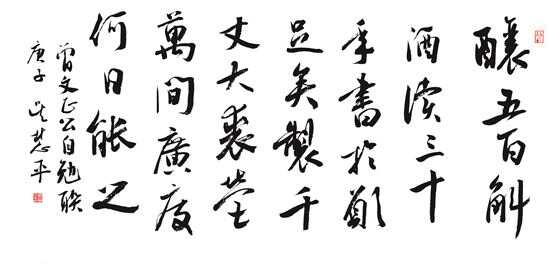 釀五百斛
酒讀三十
車書於願
足矣製千
丈大裘營
萬間廣廈
何日能之
曾文正公自勉聯
庚子吴慧平